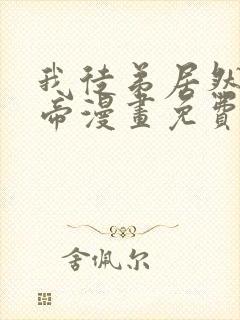 我徒弟居然
帝漫畫免費
舍佩尔